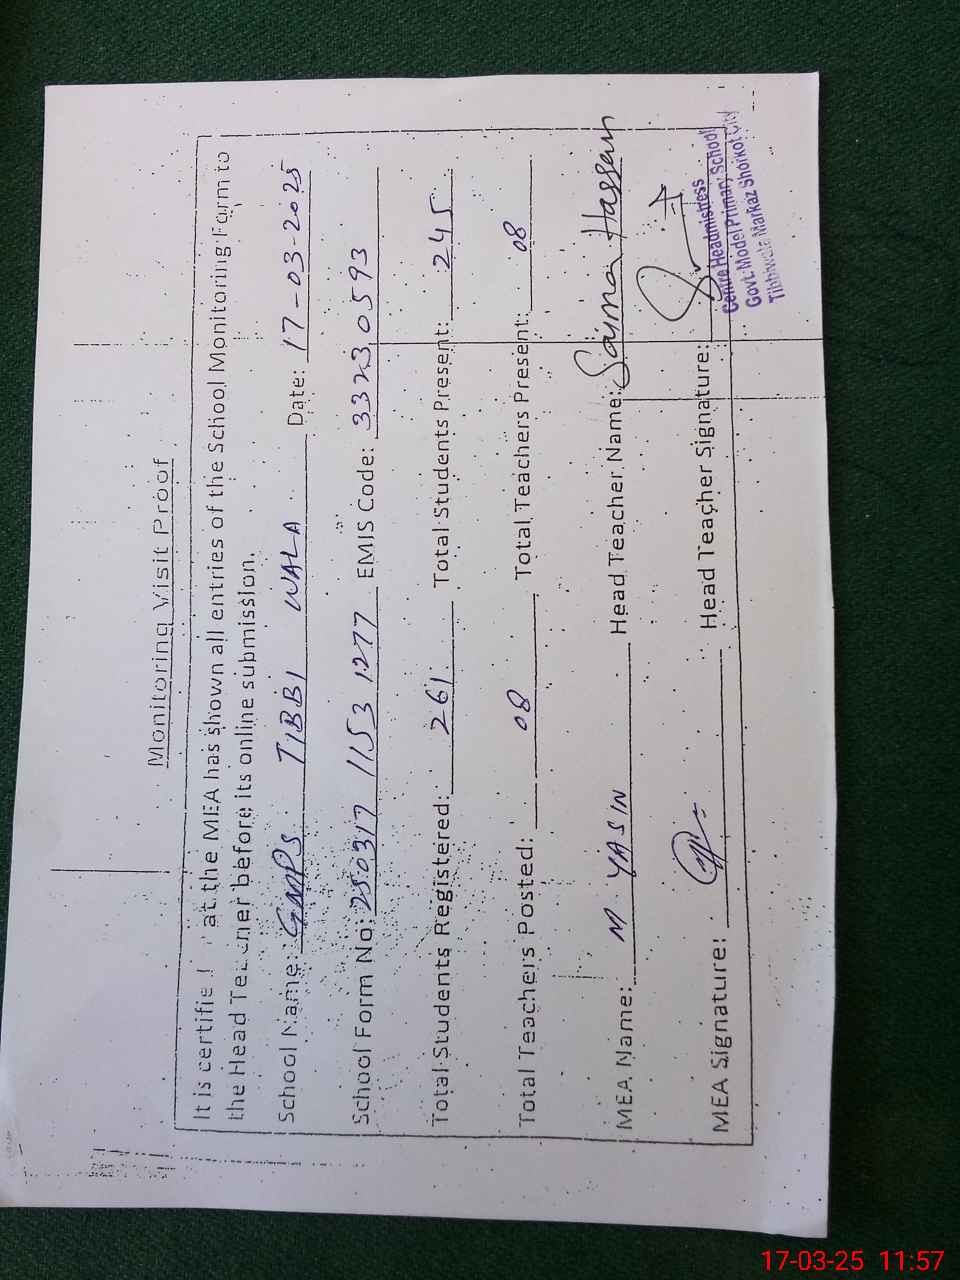 Monitoring Visit Proof
It is certified at the MEA has shown all entries of the School Monitoring Form to
the Head Teacher before its online submission.
School Name: GMPS TIBBI WALA Date: 17-03-2025
School Form No: 250317 1153 1277 EMIS Code: 33230593
Total Students Registered: 261 Total Students Present: 245
Total Teachers Posted: 08 Total Teachers Present: 08
MEA Name: M. YASIN Head Teacher Name: Saima Hassan
MEA Signature: Head Teacher Signature:
Centre Headmistress
Govt: Model Primary School
Tibbiwala Markaz Shorkot City
17-03-25 11:57